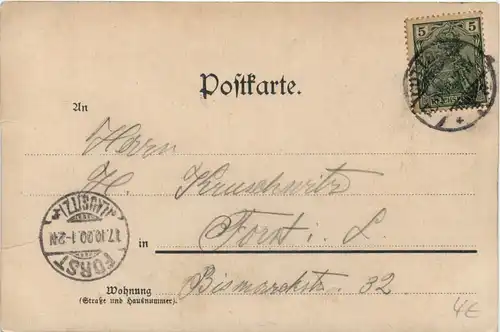 5
5
Postkarte.
An
Herrn
H. Kruschwitz
in Forst i. L.
Bismarckstr. 32.
Wohnung
(Straße und Hausnummer).
(LAUSITZ)
17.10.00.1-2N
FORST
4€